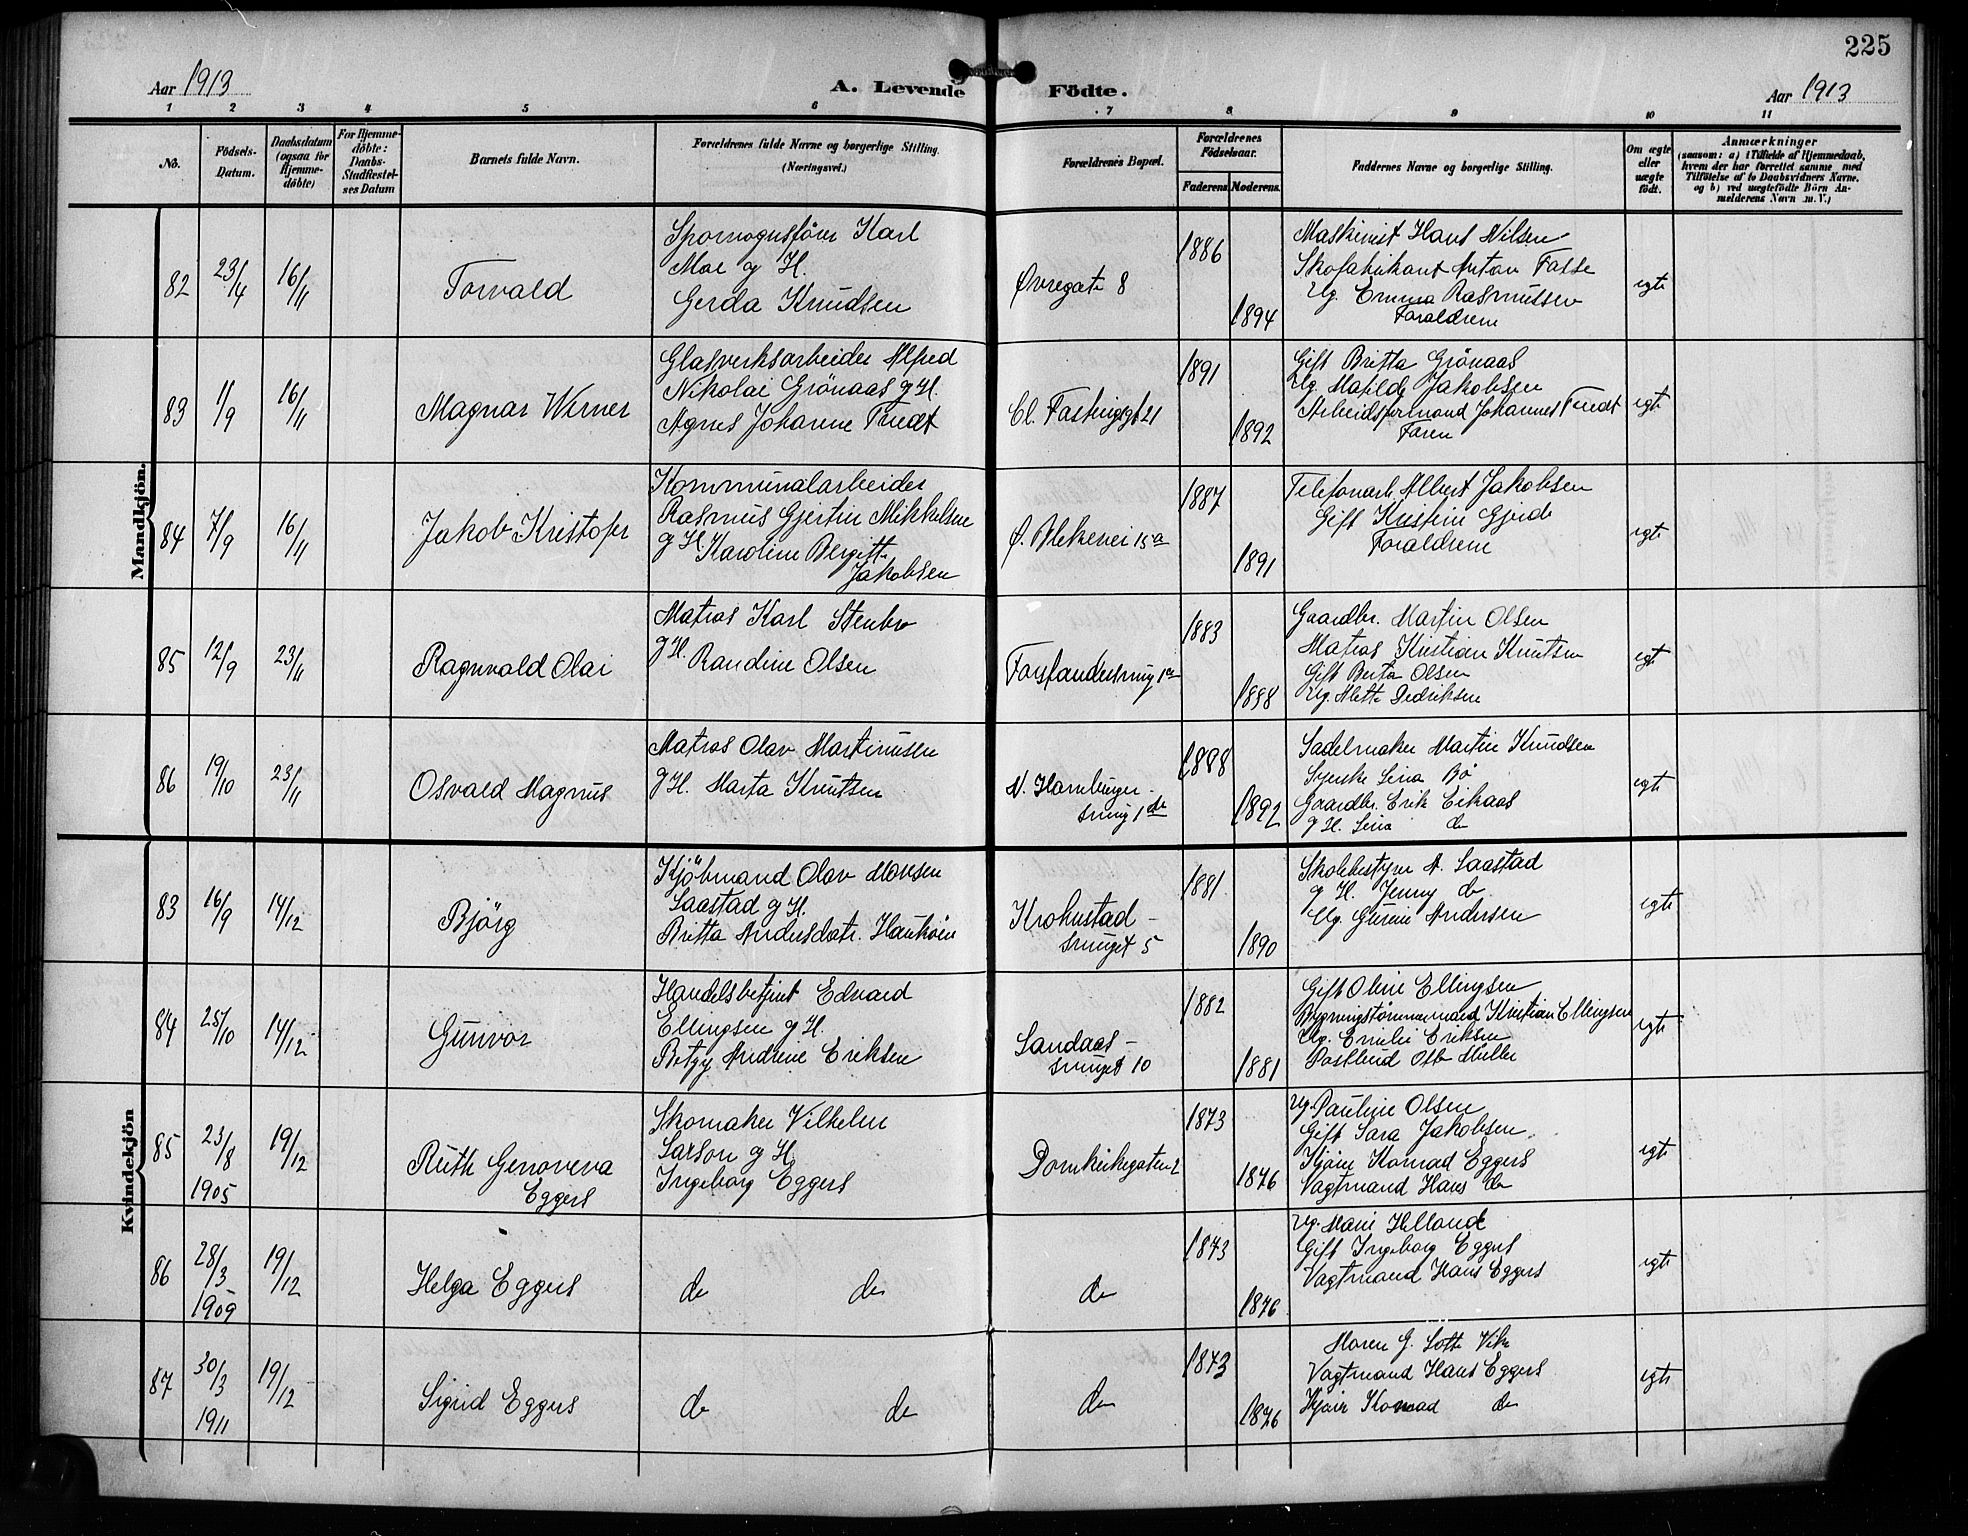 225
Aar 1913
A. Levende Födte.
Aar 1913
1 2 3 4 5 6 7 8 9 10 11
No.
Födsels-
Datum.
Daabsdatum
(ogsaa for
Hjemme-
döbte)
For Hjemme-
döbte:
Daabs-
Stadfæstel-
ses Datum
Barnets fulde Navn.
Forældrenes fulde Navne og borgerlige Stilling.
(Næringsvei.)
Forældrenes Bopæl.
Forældrenes
Födselsaar.
Faderens Moderens.
Faddernes Navne og borgerlige Stilling.
Om ægte
eller
uægte
födt.
Anmærkninger
(saasom: a) i Tilfælde af Hjemmedaab,
hvem der har forrettet samme med
Tilföielse af to Daabsvidners Navne.
og b) ved uægtefödte Börn An-
melderens Navn m. V.)
Mandkjön.
82 23/4 16/11
Torvald
Karl
Moe g H.
Gerda Knudsen
Øvregate 8
1886
1894
Maskinist Hans Nilsen
Skofabrikant Anton Fasse
Ug. Emma Rasmussen
Foraldrene
egte
83 1/9 16/11
Magnar Werner
Glasverksarbeider Alfred
Nikolai Grönaas g H.
Agnes Johanne Tuedt
Cl. Fastingsgt 21
1891
1892
Gift Britta Grönaas
Ug. Matilde Jakobsen
Arbeidsformand Johannes Tuedt
Faren
egte
84 7/9 16/11
Jakob Kristofer
Kommunalarbeider
Rasmus Gjertin Mikkelsen
g H Karoline Bergitte
Jakobsen
Ø. Blekevei 15a
1887
1891
Telefonarb. Albert Jakobsen
Gift Kristine Gjerde
Foraldrene
egte
85 12/9 23/11
Ragnvald Olai
Matros Karl Stenbo
g H. Randine Olsen
Forstandersmug 1a
1883
1888
Gaardbr. Martin Olsen
Matros Kristian Knutsen
Gift Berta Olsen
Ug. Mette Dedriksen
egte
86 19/10 23/11
Osvald Magnus
Matros Olav Martinusen
g H. Marta Knutsen
N. Hamburger-
smug 1
1888
1892
Sadelmaker Martin Knudsen
Syerske Lina Bø
Gaardbr. Erik Eikaas
g H. Lina do
egte
Kvindekjön
83 16/9 14/12
Björg
Kjöbmand Olav Monsen
Saastad g H.
Britta Andersdatr. Haukøen
Krohnstad-
smuget 5
1881
1890
Skolebestyrer A. Saastad
g H. Jenny do
Ug. Gurine Andersen
egte
84 25/10 14/12
Gunvor
Handelsbetjent Edvard
Ellingsen g H.
Betzy Andrine Eriksen
Sandaas-
smuget 10
1882
1881
Gift Oline Ellingsen
Bygningstømmermand Kristian Ellingsen
Ug. Emilie Eriksen
Postbud Otto Müller
egte
85 23/8 19/12
1905
Ruth Genoveva
Eggers
Skomaker Vilhelm
Larson g H.
Ingeborg Eggers
Domkirkegaten 2
1873
1876
Ug. Pauline Olsen
Gift Sara Jakobsen
Kjører Konrad Eggers
Vagtmand Hans do
egte
86 28/3 19/12
1909
Helga Eggers
do do
do
1873
1876
Ug. Marie Helland
Gift Ingeborg Eggers
Vagtmand Hans Eggers
egte
87 30/3 19/12
1911
Sigrid Eggers
do do
do
1873
1876
Moren G. Lotte Vik
Vagtmand Hans Eggers
Kjører Konrad do
egte